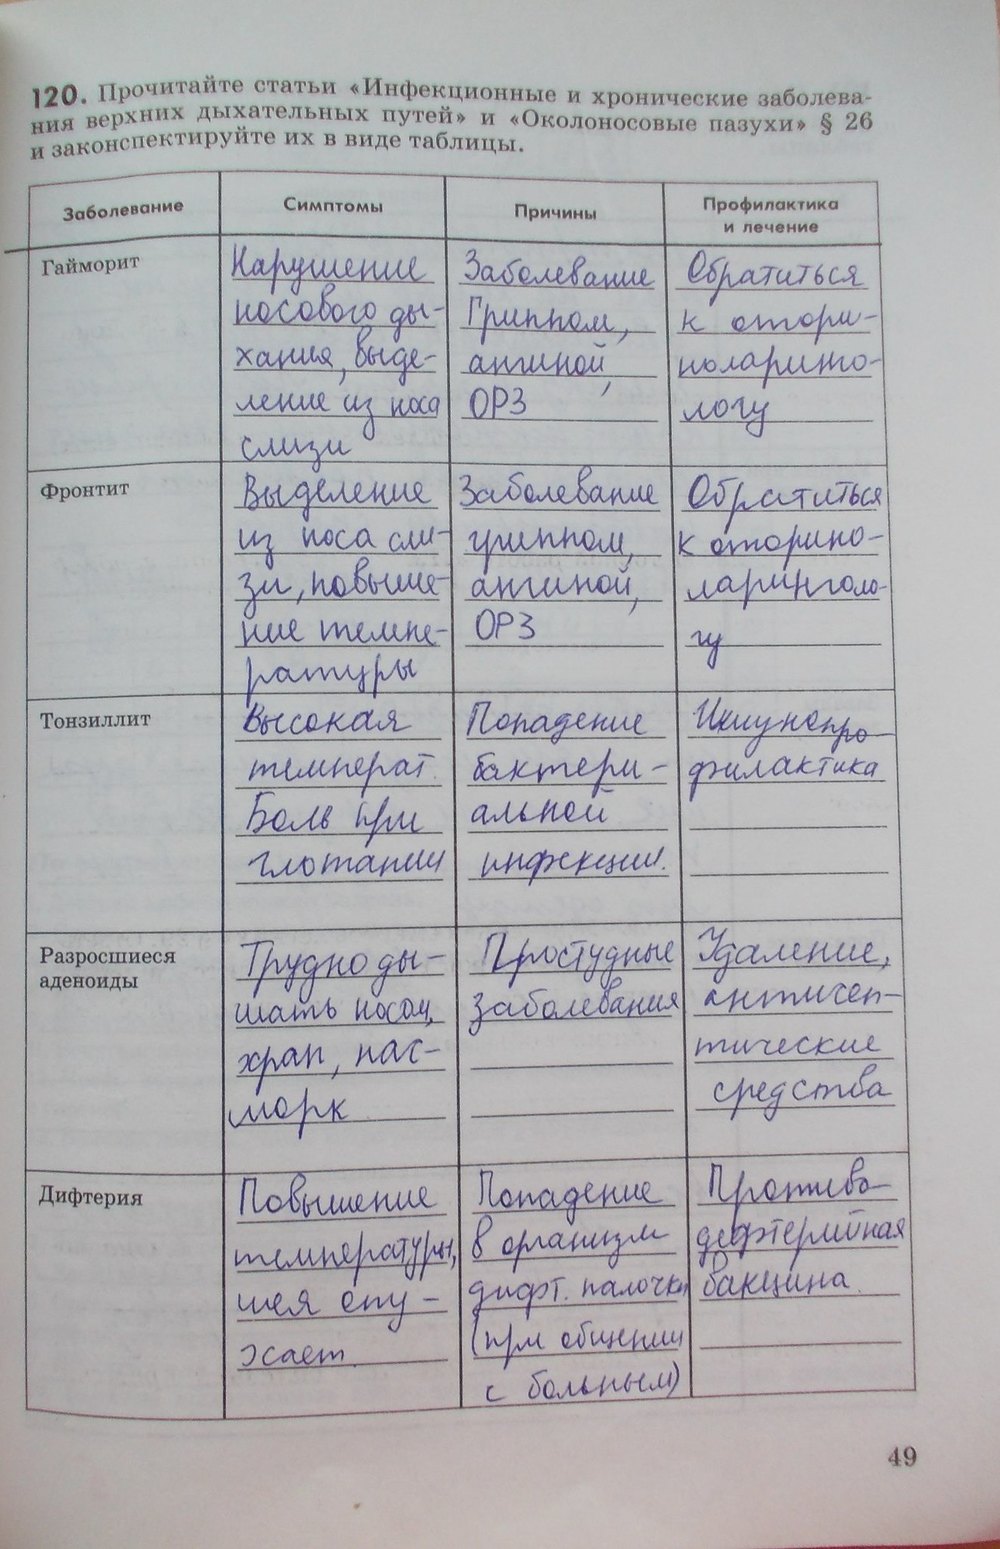 120. Прочитайте статьи «Инфекционные и хронические заболева-
ния верхних дыхательных путей» и «Околоносовые пазухи» § 26
и законспектируйте их в виде таблицы.
Заболевание
Симптомы
Причины
Профилактика
и лечение
Гайморит
Нарушение
носового ды-
хания, выде-
ление из носа
слизи
Заболевание
Гриппом,
ангиной,
ОРЗ
Обратиться
к отори-
ноларинго-
логу
Фронтит
Выделение
из носа сли-
зи, повыше-
ние темпе-
ратуры
Заболевание
гриппом,
ангиной,
ОРЗ
Обратиться
к оторино-
ларинголо-
гу
Тонзиллит
Высокая
температ.
Боль при
глотании
Попадение
бактери-
альной
инфекции.
Имунопро-
филактика
Разросшиеся
аденоиды
Трудно ды-
шать носом,
храп, нас-
морк
Простудные
заболевания
Удаление,
антисеп-
тические
средства
Дифтерия
Повышение
температуры,
шея опу-
хает.
Попадение
в организм
дифт. палочки
(при общении
с больным)
Противо-
дефтерийная
вакцина.
49